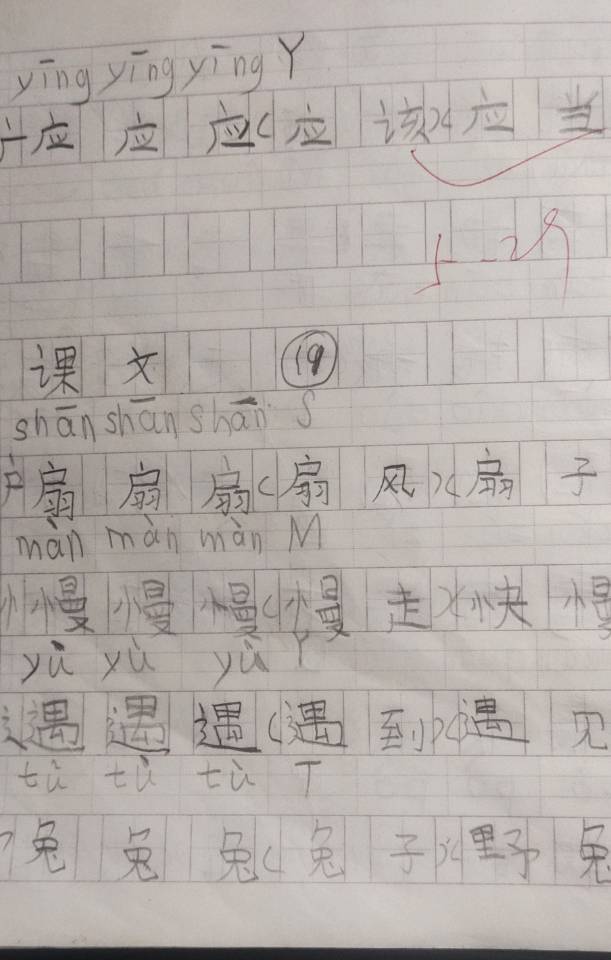 yīng yīng yīng Y
广应 应 应(应 该)(应 当
5-29
课 文 19
shān shān shān S
户扇 扇 扇(扇 风)(扇 子
màn màn màn M
忄慢 慢 慢(慢 走)(快 慢
yù yù yù Y
辶遇 遇 遇(遇 到)(遇 见
tù tù tù T
兔 兔 兔(兔 子)(野 兔